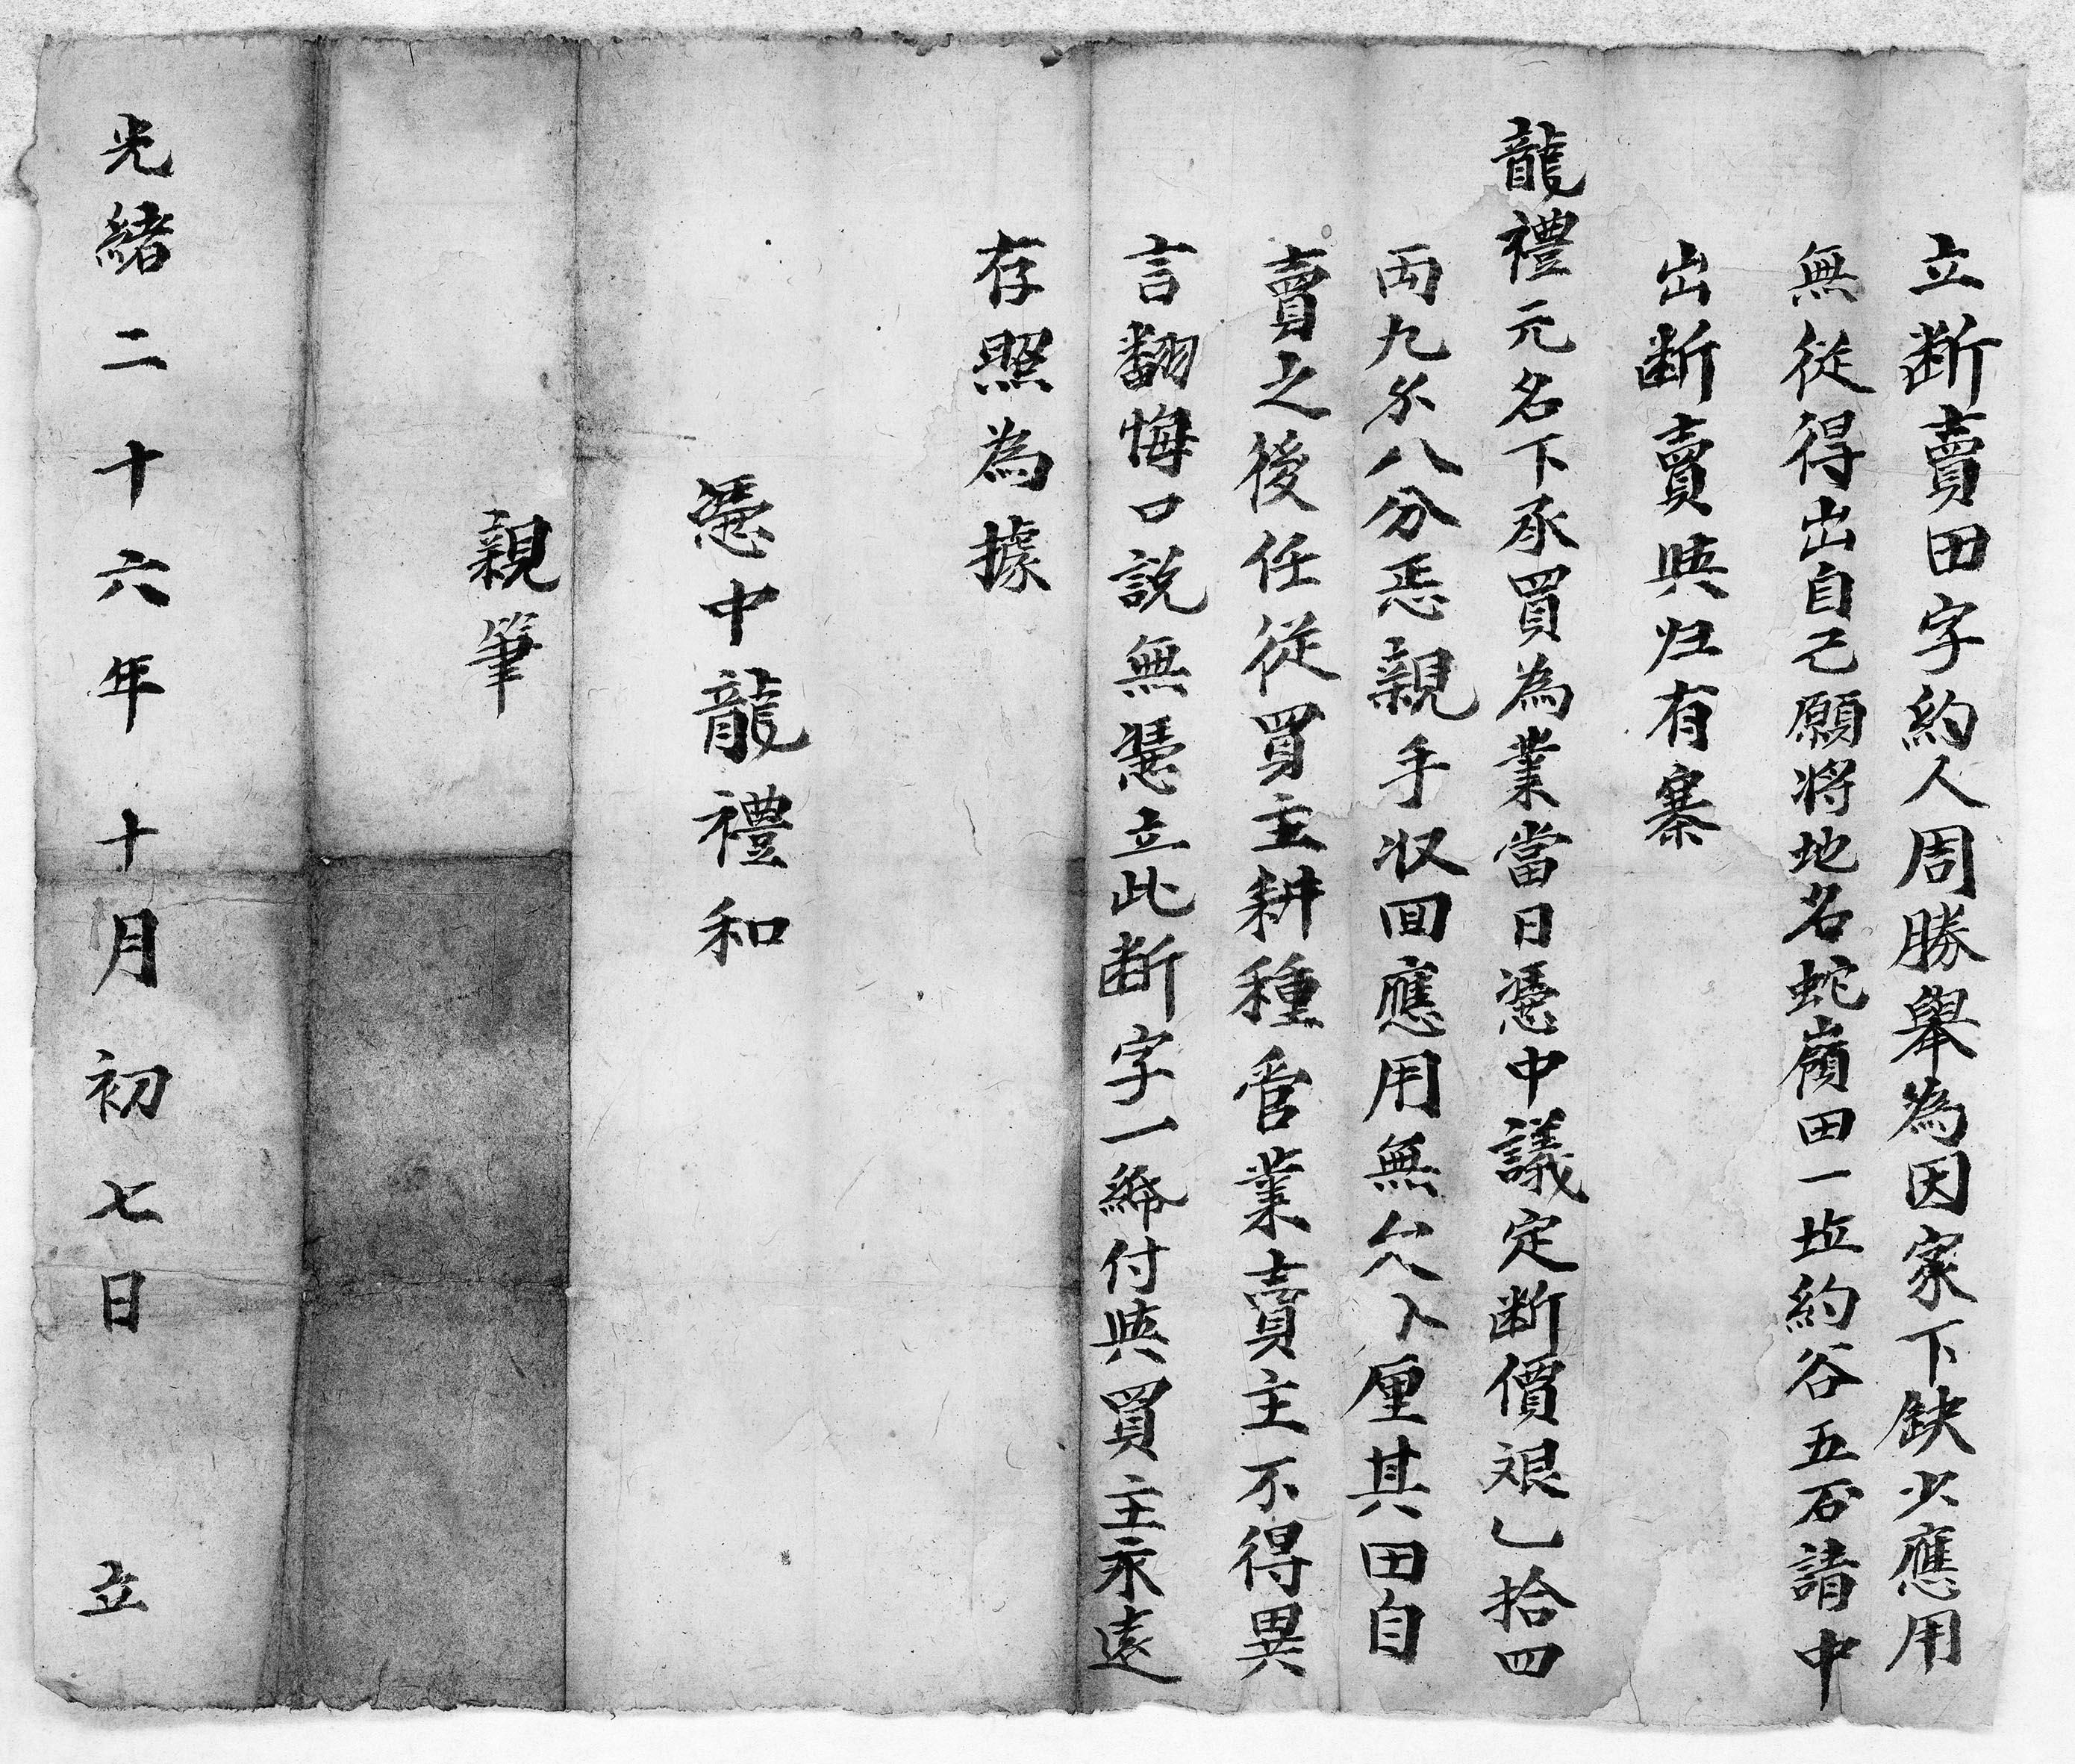 立断賣田字約人周勝舉為因家下缺少應用
無從得出自己願將地名蛇嶺田一坵約谷五石請中
出断賣與归有寨
龍禮元名下承買為業當日憑中議定断價艮乚拾四
両九分八分恶親手収回應用無欠入厘其田自
賣之後任從買主耕種管業賣主不得異
言翻悔口説無憑立此断字一紙付與買主永遠
存照為據
憑中龍禮和
親筆
光緒二十六年十月初七日立